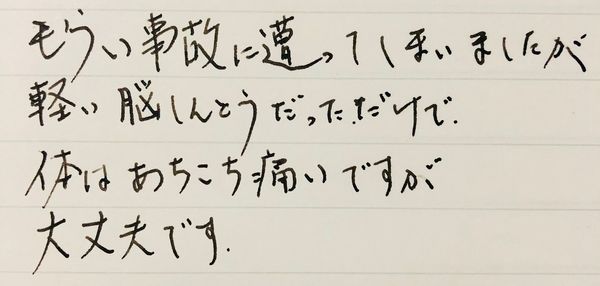 もらい事故に遭ってしまいましたが
軽い脳しんとうだっただけで.
体はあちこち痛いですが
大丈夫です.